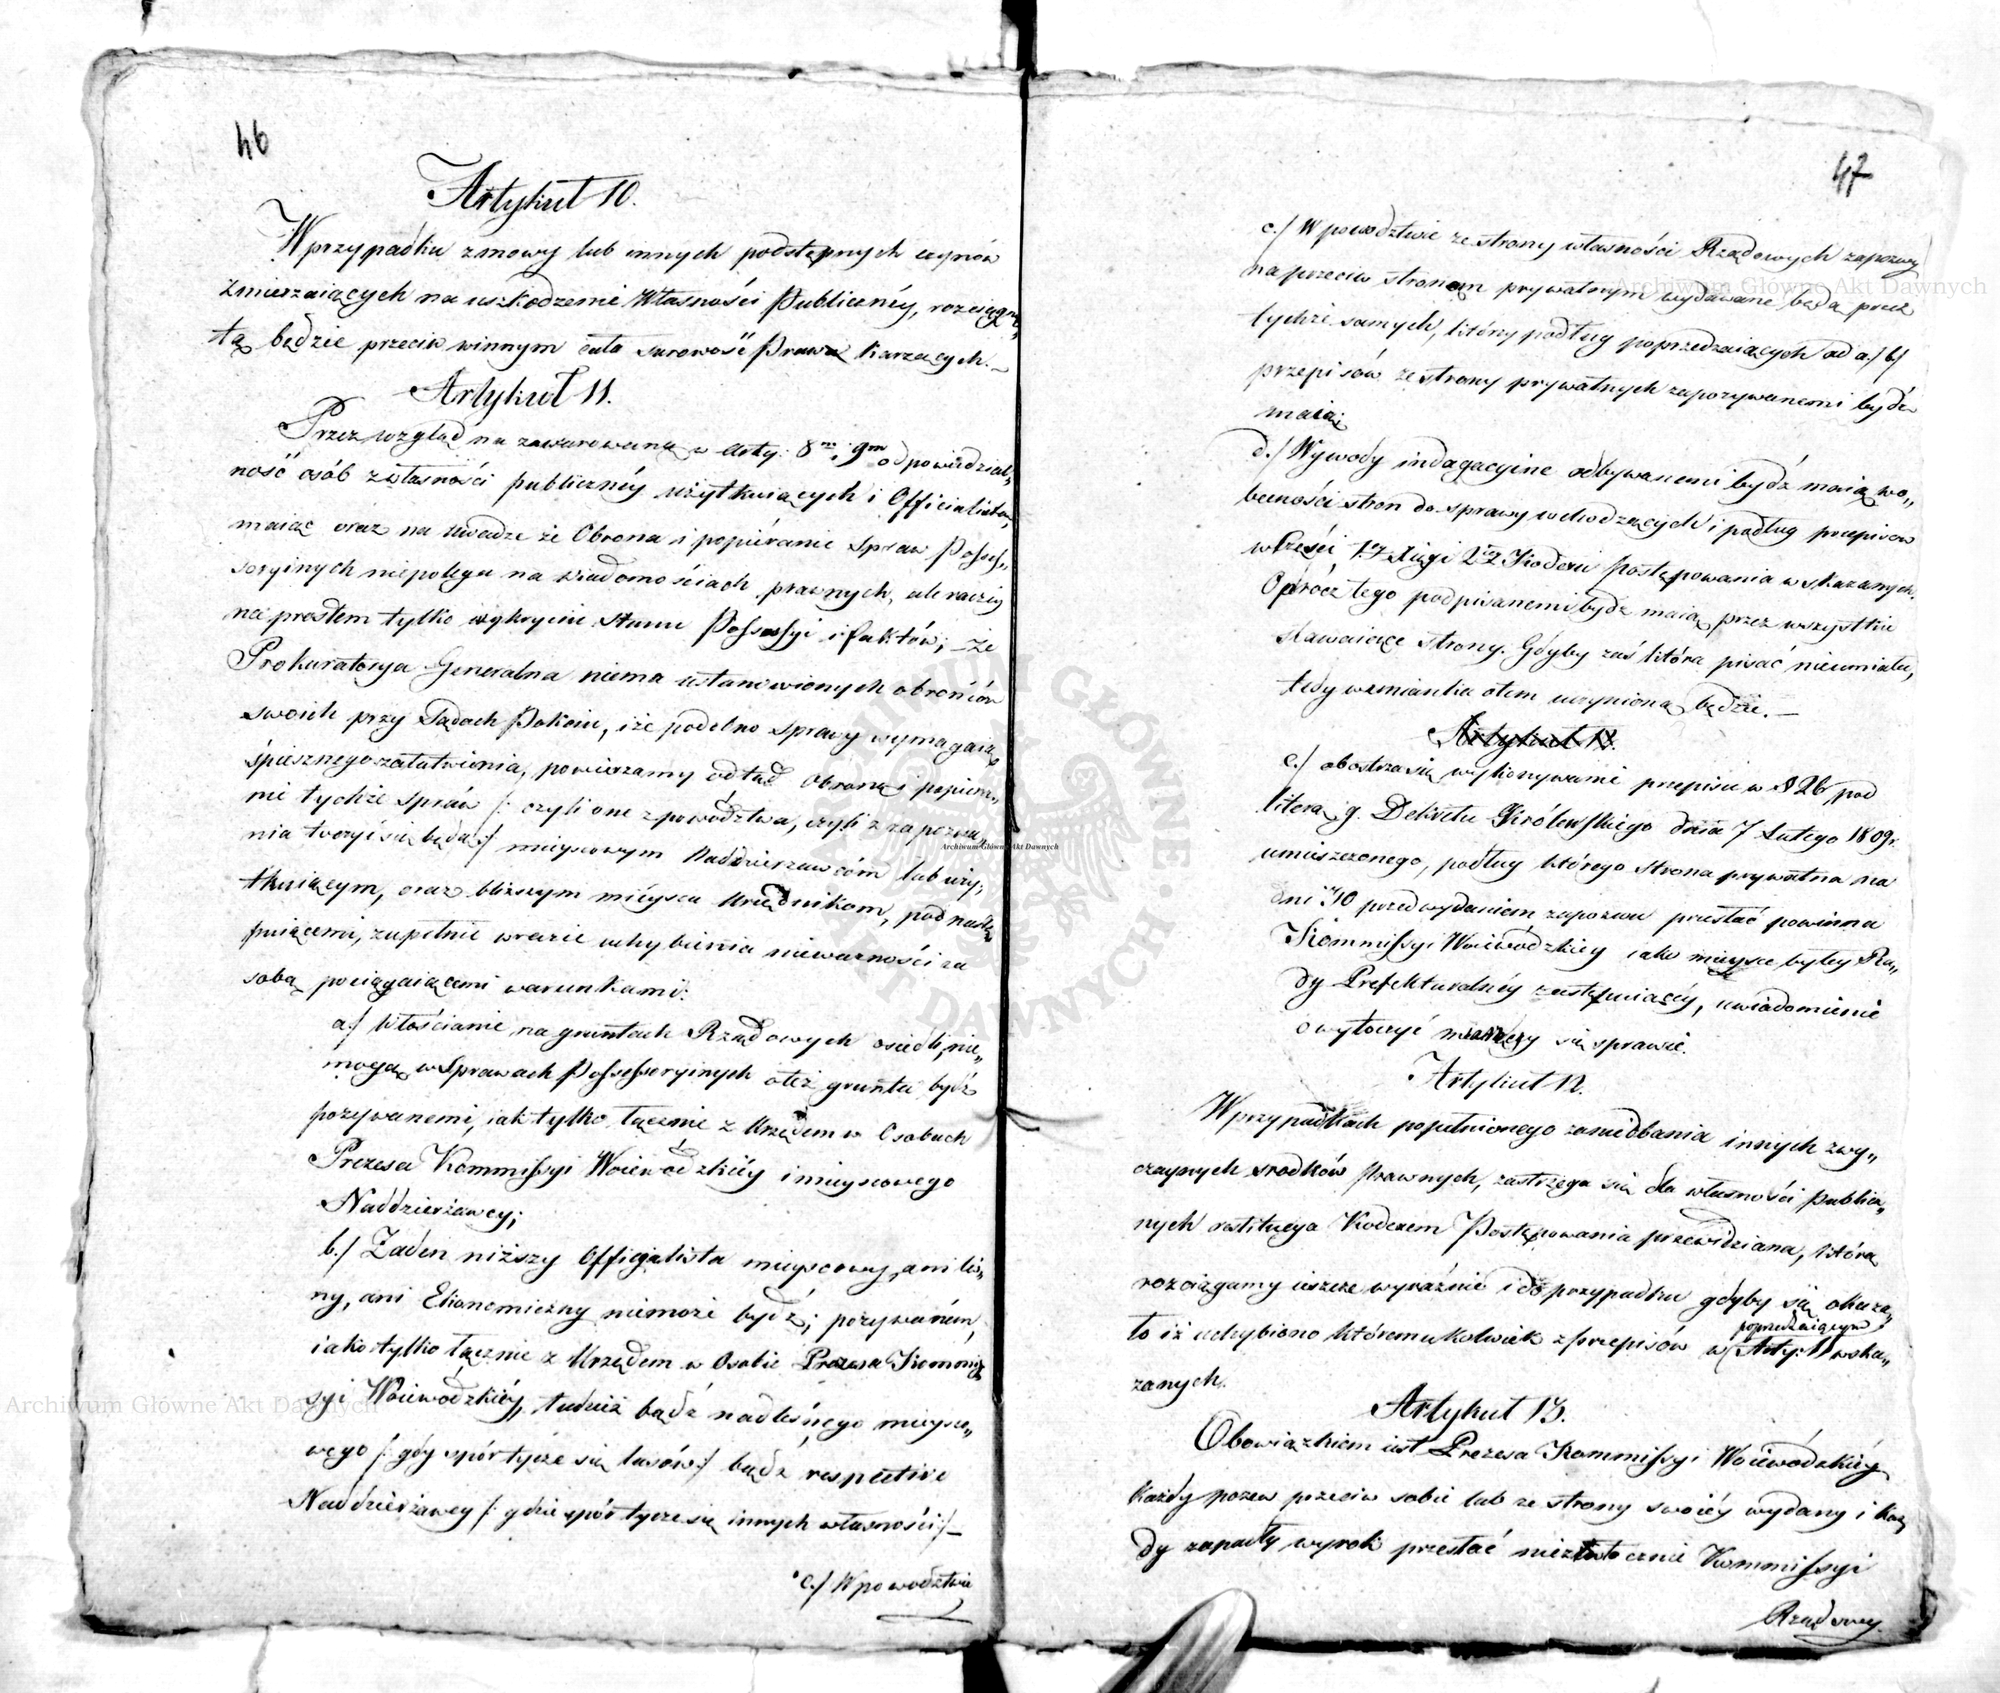 46
Artykuł 10.
W przypadku zmowy lub innych podstępnych czynów
zmierzaiących na uszkodzenie Własności Publicznéy, rozciągnię„
tą będzie przeciw winnym cała surowość Prawa karzących.—
Artykuł 11.
Przez wzgląd na zawarowaną w Arty: 8m i 9m odpowiedzial„
ność osób z własności publicznéy użytkuiących i Officialistów,
maiąc oraz na uwadze że Obrona i popiéranie spraw Possess„
soryinych niepolega na wiadomościach prawnych, ale raczéy
na prostem tylko wykryciu stanu Possessyi i faktów; — że
Prokuratorya Generalna niema ustanowionych obrońców
swoich przy Sądach Pokoiu, i że podobno sprawy wymagaią
śpiesznego załatwienia, powierzamy odtąd Obronę i popiera„
nie tychże spraw /: czyli one z powództwa, czyli z zapozwa„
nia tworzyć się będą :/ mieyscowym Naddzierzawcom lub uży„
tkuiącym, oraz bliższym miéysca Urzędnikom, pod nastę„
puiącemi, zupełnie w razie uchybienia nieważności za
sobą pociągaiącemi warunkami:
a:/ Włościanie na gruntach Rządowych osiedli, nie„
mogą w Sprawach Possessoryinych o też grunta bydź
pozywanemi, iak tylko łącznie z Urzędem w Osobach
Prezesa Kommissyi Woiewódzkiéy i mieyscowego
Naddzierżawcy;
b./ Żaden niższy Officjalista mieyscowy, ani leś„
ny, ani Ekonomiczny niemoże bydź; pozywaném,
iako tylko łącznie z Urzędem w Osobie Prezesa Kommis
syi Woiewódzkiéy, tudzież bądź nadleśnego mieysco„
wego /: gdy spór tycze się lasów :/ bądź respective
Naddzierżawcy /: gdzie spór tycze się innych własności :/—
c./ W powodztwie
47
c./ W powodztwie ze strony własności Rządowych zapozwy
na przeciw stronom prywatnym wydawane będą przez
tychże samych, którzy podług poprzedzaiących ad a./ b/
przepisów ze strony prywatnych zapozywanemi bydź
maią;
d./ Wywody indagacyine odbywanemi bydź maią w o„
becności stron do sprawy wchodzących i podług przepisow
w Części 1éy Xięgi 2iéy Kodexu postępowania wskazanych.
Oprócz tego podpisanemi bydź maią, przez wszystkie
stawaiące strony. Gdyby zaś która pisać nieumiała,
tedy wzmianka o tem uczynioną będzie.—
Artykuł 12.
e./ obostrza się wykonywanie przepisu w § 26 pod
literą g. Dekretu Królewskiego dnia 7 Lutego 1809r.
umieszczonego, podług którego strona prywatna na
dni 10 przed wydaniem zapozwu przesłać powinna
Kommissyi Woiewódzkiey iako mieysce byłey Ra„
dy Prefekturalnéy zastępuiącéy, uwiadomienie
o wytoczyć maiącéy się sprawie.
Artykuł 12.
W przypadkach popełnionego zaniedbania innych zwy„
czaynych srodków prawnych, zastrzega się dla własności publicz„
nych restitucya Kodexem Postępowania przewidziana, którą
rozciągamy ieszcze wyraźnie i do przypadku gdyby się okaza„
poprzedzaiącym
ło iż uchybiono któremukolwiek z przepisów w Arty: 11 wska„
zanych.
Artykuł 13.
Obowiązkiem iest Prezesa Kommissyi Woiewódzkiéy
każdy pozew przeciw sobie lub ze strony swoiéy wydany i każ
dy zapadły wyrok przesłać niezwłocznie Kommissyi
Rządowey
Archiwum Główne Akt Dawnych
Archiwum Główne Akt Dawnych
Archiwum Główne Akt Dawnych
ARCHIWUM GŁÓWNE AKT DAWNYCH